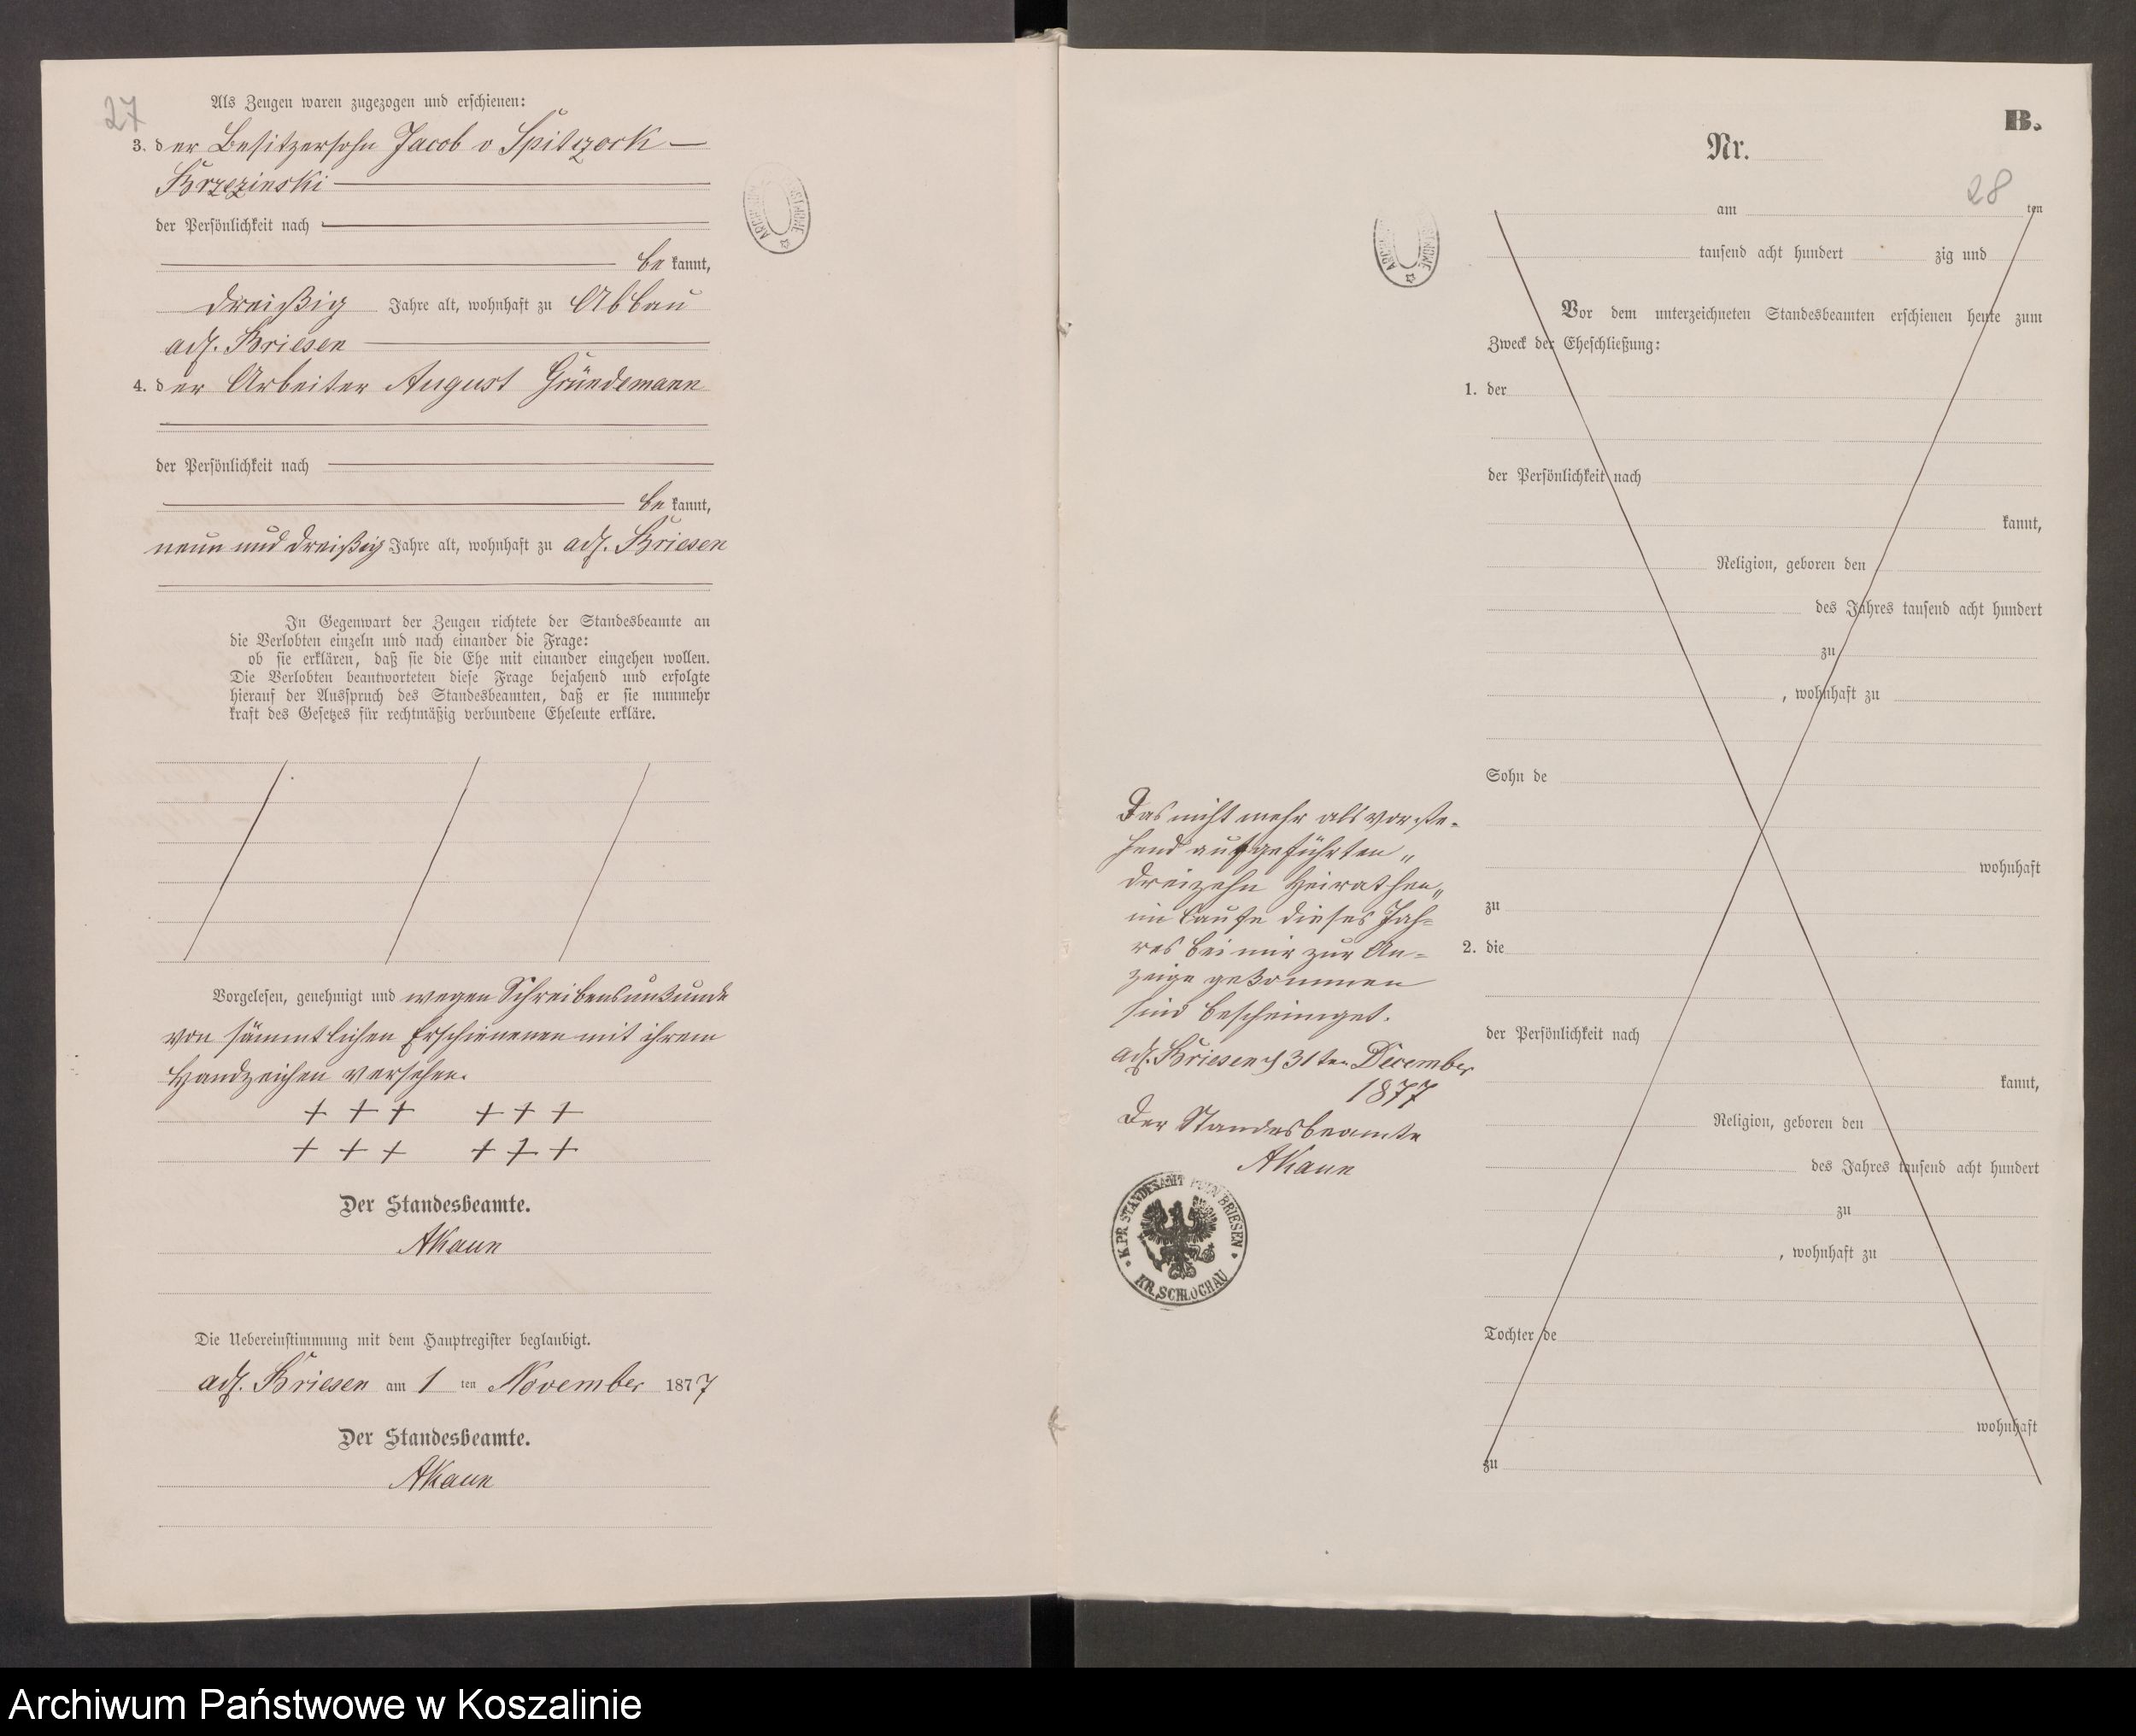 27
Als Zeugen waren zugezogen und erschienen:
3. der Besitzersohn Jacob v Spiczack —
Brzezinski
der Persönlichkeit nach
be kannt,
dreißig Jahre alt, wohnhaft zu Abbau
adl. Briesen
4. der Arbeiter August Gründemann
der Persönlichkeit nach
be kannt,
neun und dreißig Jahre alt, wohnhaft zu adl. Briesen
In Gegenwart der Zeugen richtete der Standesbeamte an
die Verlobten einzeln und nach einander die Frage:
ob sie erklären, daß sie die Ehe mit einander eingehen wollen.
Die Verlobten beantworteten diese Frage bejahend und erfolgte
hierauf der Ausspruch des Standesbeamten, daß er sie nunmehr
kraft des Gesetzes für rechtmäßig verbundene Eheleute erkläre.
Vorgelesen, genehmigt und wegen Schreibensunkunde
von sämmtlichen Erschienenen mit ihrem
Handzeichen versehen.
+ + + + + +
+ + + + + +
Der Standesbeamte.
AKaun
Die Uebereinstimmung mit dem Hauptregister beglaubigt.
adl. Briesen am 1 ten November 1877
Der Standesbeamte.
AKaun
B.
Nr.
28
am ten
tausend acht hundert zig und
Vor dem unterzeichneten Standesbeamten erschienen heute zum
Zweck der Eheschließung:
1. der
der Persönlichkeit nach
kannt,
Religion, geboren den
des Jahres tausend acht hundert
zu
, wohnhaft zu
Sohn de
wohnhaft
zu
2. die
der Persönlichkeit nach
kannt,
Religion, geboren den
des Jahres tausend acht hundert
zu
, wohnhaft zu
Tochter de
wohnhaft
zu
Das nicht mehr als vorste-
hend aufgeführten „
dreizehn Heirathen „
im Laufe dieses Jah=
res bei mir zur An=
zeige gekommen
sind bescheiniget.
adl. Briesen d 31ten December
1877
Der Standesbeamte
AKaun
K. PR. STANDESAMT BRIESEN
KR. SCHLOCHAU
Archiwum Państwowe w Koszalinie